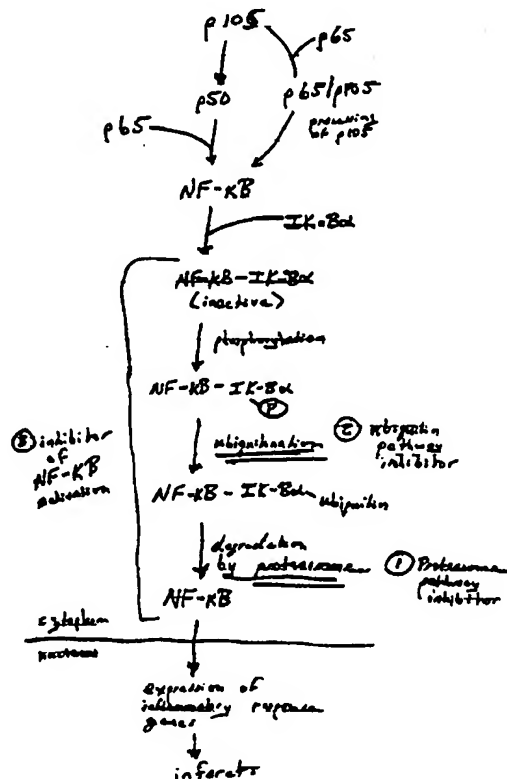 p105
p65
p50
p65/p105
processing
of p105
p65
NF-KB
IK-Bα
NF-KB-IK-Bα
(inactive)
phosphorylation
NF-KB-IK-Bα
P
③ inhibitor
of
NF-KB
activation
ubiquitination
② ubiquitin
pathway
inhibitor
NF-KB-IK-Bα
ubiquitin
degradation
by proteasome
① Proteasome
pathway
inhibitor
NF-KB
nucleus
expression of
inflammatory response
genes